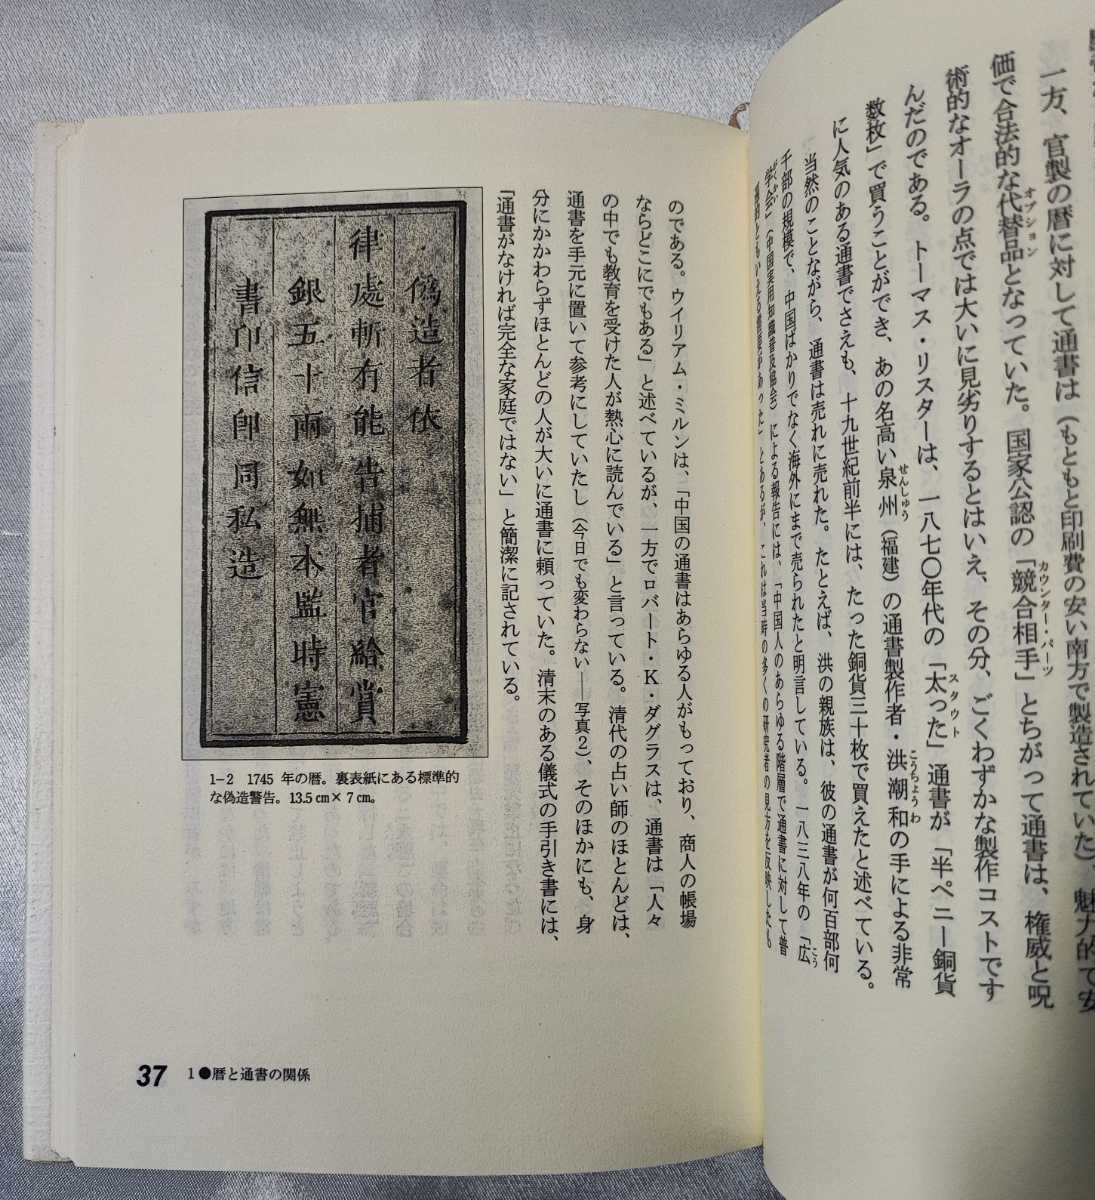 一方、官製の暦に対して通書は(もともと印刷費の安い南方で製造されていた)、魅力的で安
オプション
カウンター・パーツ
価で合法的な代替品となっていた。国家公認の「競合相手」とちがって通書は、権威と呪
術的なオーラの点では大いに見劣りするとはいえ、その分、ごくわずかな製作コストです
スタウト
んだのである。トーマス・リスターは、一八七〇年代の「太った」通書が「半ペニー銅貨
せんしゅう
こうちょうわ
数枚」で買うことができ、あの名高い泉州(福建)の通書製作者・洪潮和の手による非常
に人気のある通書でさえも、十九世紀前半には、たった銅貨三十枚で買えたと述べている。
当然のことながら、通書は売れに売れた。たとえば、洪の親族は、彼の通書が何百部何
こう
千部の規模で、中国ばかりでなく海外にまで売られたと明言している。一八三八年の「広
がくかい
学会」(中国実用知識普及協会)による報告には、「中国人のあらゆる階層で通書に対して普
遍的ともいえる需要があった」とあるが、これは当時の多くの研究者の見方を反映したも
のである。ウイリアム・ミルンは、「中国の通書はあらゆる人がもっており、商人の帳場
ならどこにでもある」と述べているが、一方でロバート・K・ダグラスは、通書は「人々
の中でも教育を受けた人が熱心に読んでいる」と言っている。清代の占い師のほとんどは、
通書を手元に置いて参考にしていたし(今日でも変わらない──写真2)、そのほかにも、身
分にかかわらずほとんどの人が大いに通書に頼っていた。清末のある儀式の手引き書には、
「通書がなければ完全な家庭ではない」と簡潔に記されている。
偽造者依
律處斬有能告捕者官給賞
銀五十兩如無本監時憲
書印信即同私造
1-2 1745年の暦。裏表紙にある標準的
な偽造警告。13.5㎝×7㎝。
37 1●暦と通書の関係